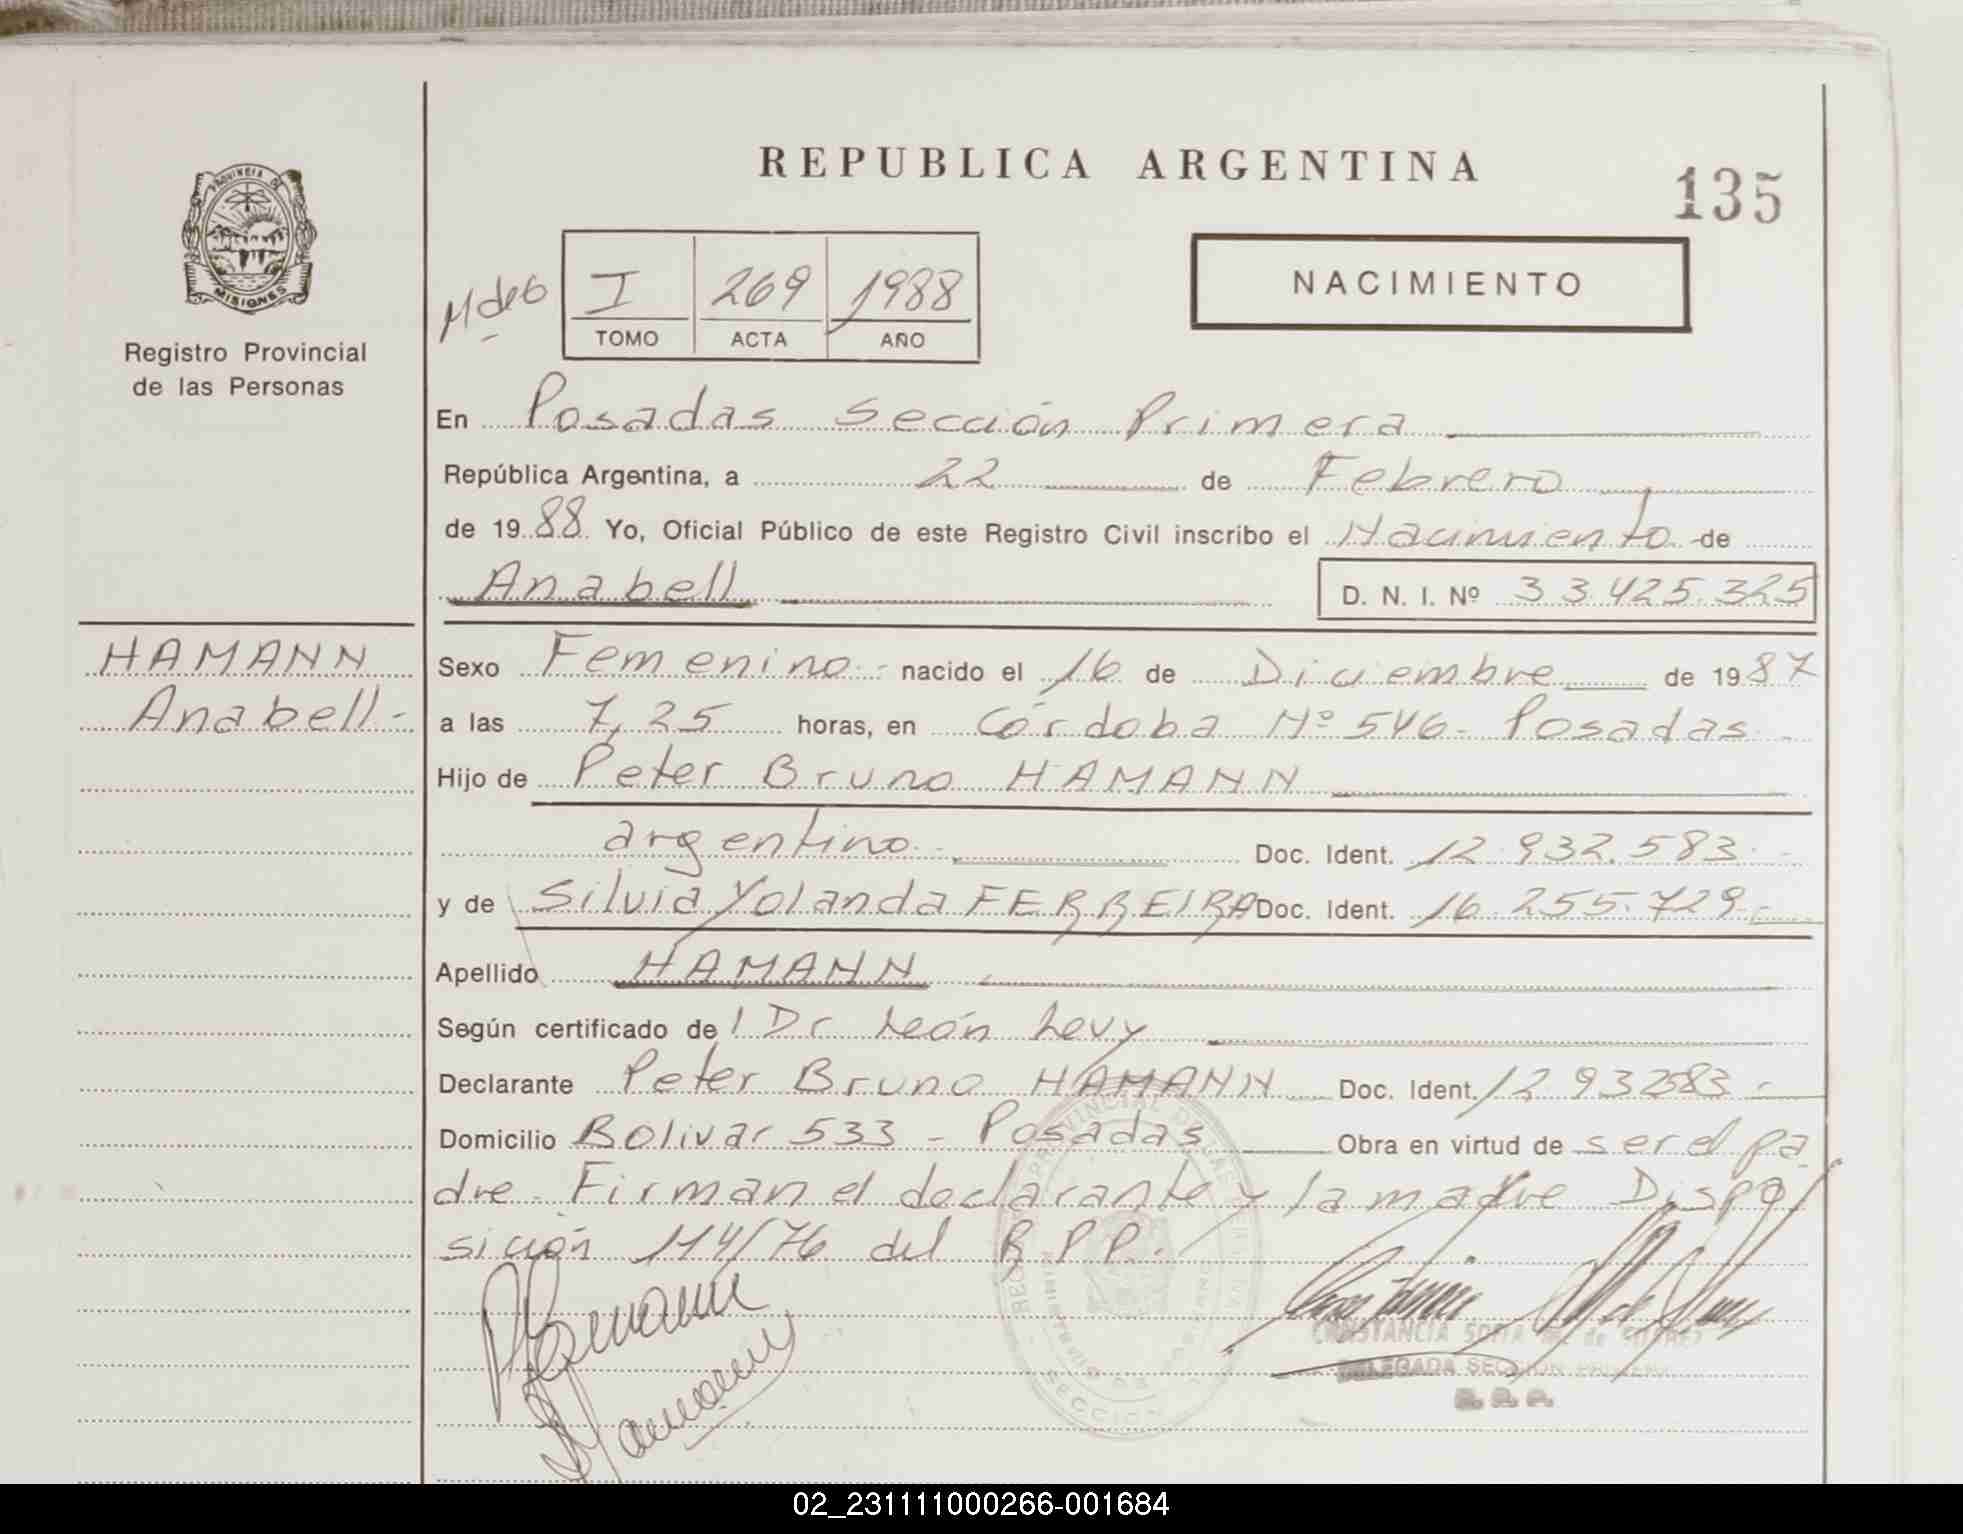 REPUBLICA ARGENTINA
135
PROVINCIA DE
MISIONES
Registro Provincial
de las Personas
I 269 1988
TOMO ACTA AÑO
NACIMIENTO
En Posadas Sección Primera
República Argentina, a 22 de Febrero
de 1988 Yo, Oficial Público de este Registro Civil inscribo el Nacimiento de
Anabell D. N. I. Nº 33.425.325
HAMANN
Anabell-
Sexo Femenino- nacido el 16 de Diciembre de 1987
a las 7,25 horas, en Córdoba Nº 546- Posadas-
Hijo de Peter Bruno HAMANN
argentino- Doc. Ident. 12.932.583-
y de Silvia Yolanda FERREIRA Doc. Ident. 16.255.729-
Apellido HAMANN
Según certificado del Dr León Levy
Declarante Peter Bruno HAMANN Doc. Ident. 12932583-
Domicilio Bolivar 533 - Posadas Obra en virtud de ser el pa
dre- Firman el declarante y la madre Dispo
sición 114/76 del R P P.
CONSTANCIA SOFIA de
DELEGADA SECCION PRIMERA
02_231111000266-001684